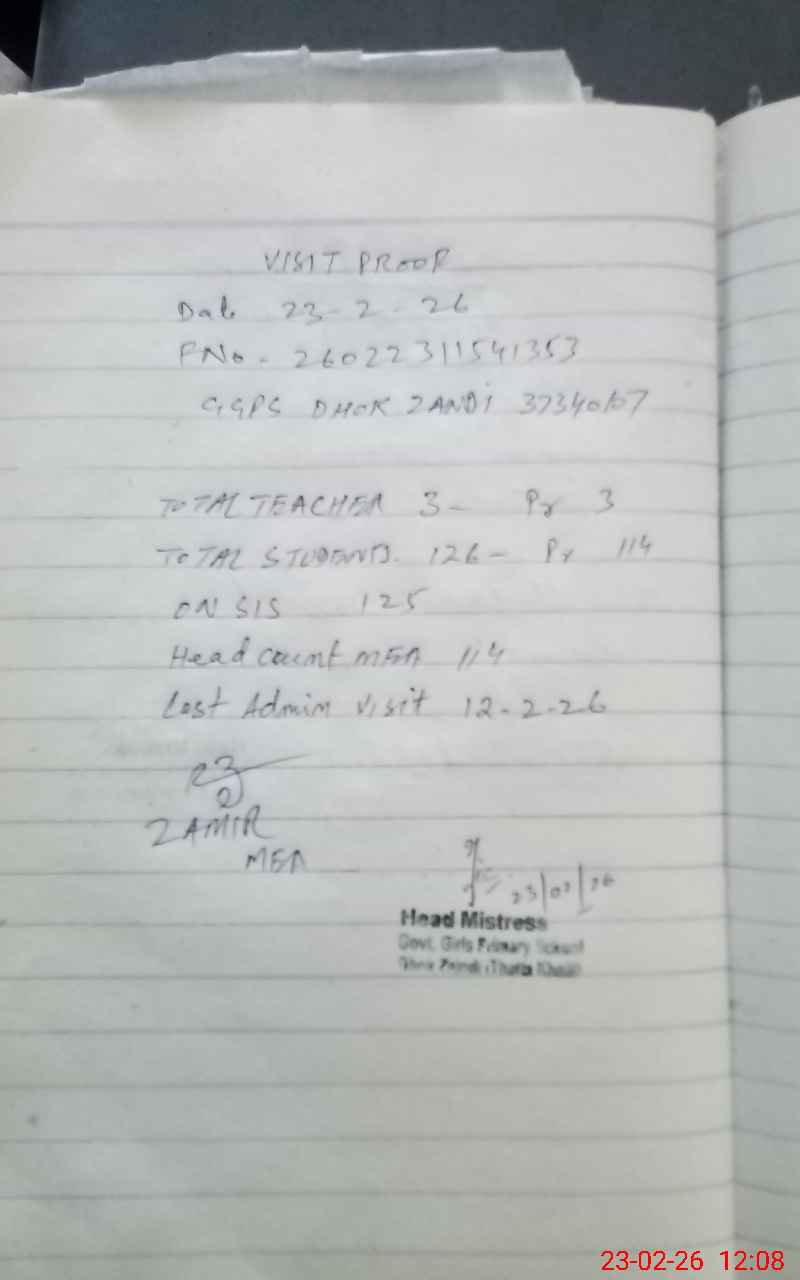 VISIT PROOF
Date 23-2-26
FNo - 26022311541353
GGPS DHOK ZANDI 37340107
TOTAL TEACHER 3- Pr 3
TOTAL STUDENTS. 126- Pr 114
ON SIS 125
Head count MEA 114
Last Admin visit 12-2-26
23/2
ZAMIR
MEA
23/02/26
Head Mistress
Govt. Girls Primary School
23-02-26 12:08